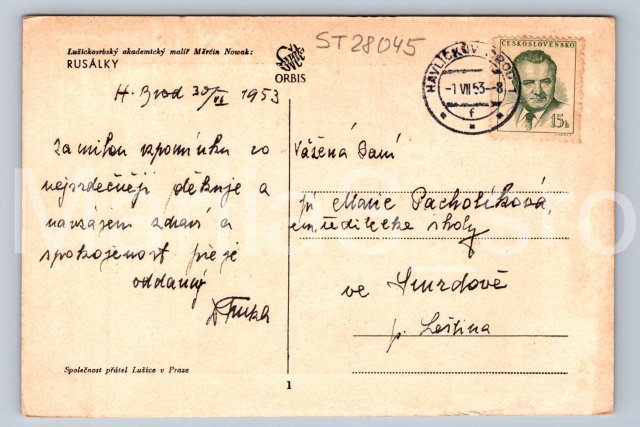 Lužickosrbský akademický malíř Měrćin Nowak:
RUSÁLKY
Svět
ORBIS
ST28045
ČESKOSLOVENSKO
15h
HAVLÍČKŮV BROD 1
-1 VII 53-8
f
H. Brod 30/VI 1953
Za milou vzpomínku co
nejsrdečněji děkuje a
navzájem zdraví a
spokojenost přeje
oddaný
Vážená Paní
pí Marie Pacholíková,
em. ředitelka školy
ve Smrdově
p. Leština
Společnost přátel Lužice v Praze
1